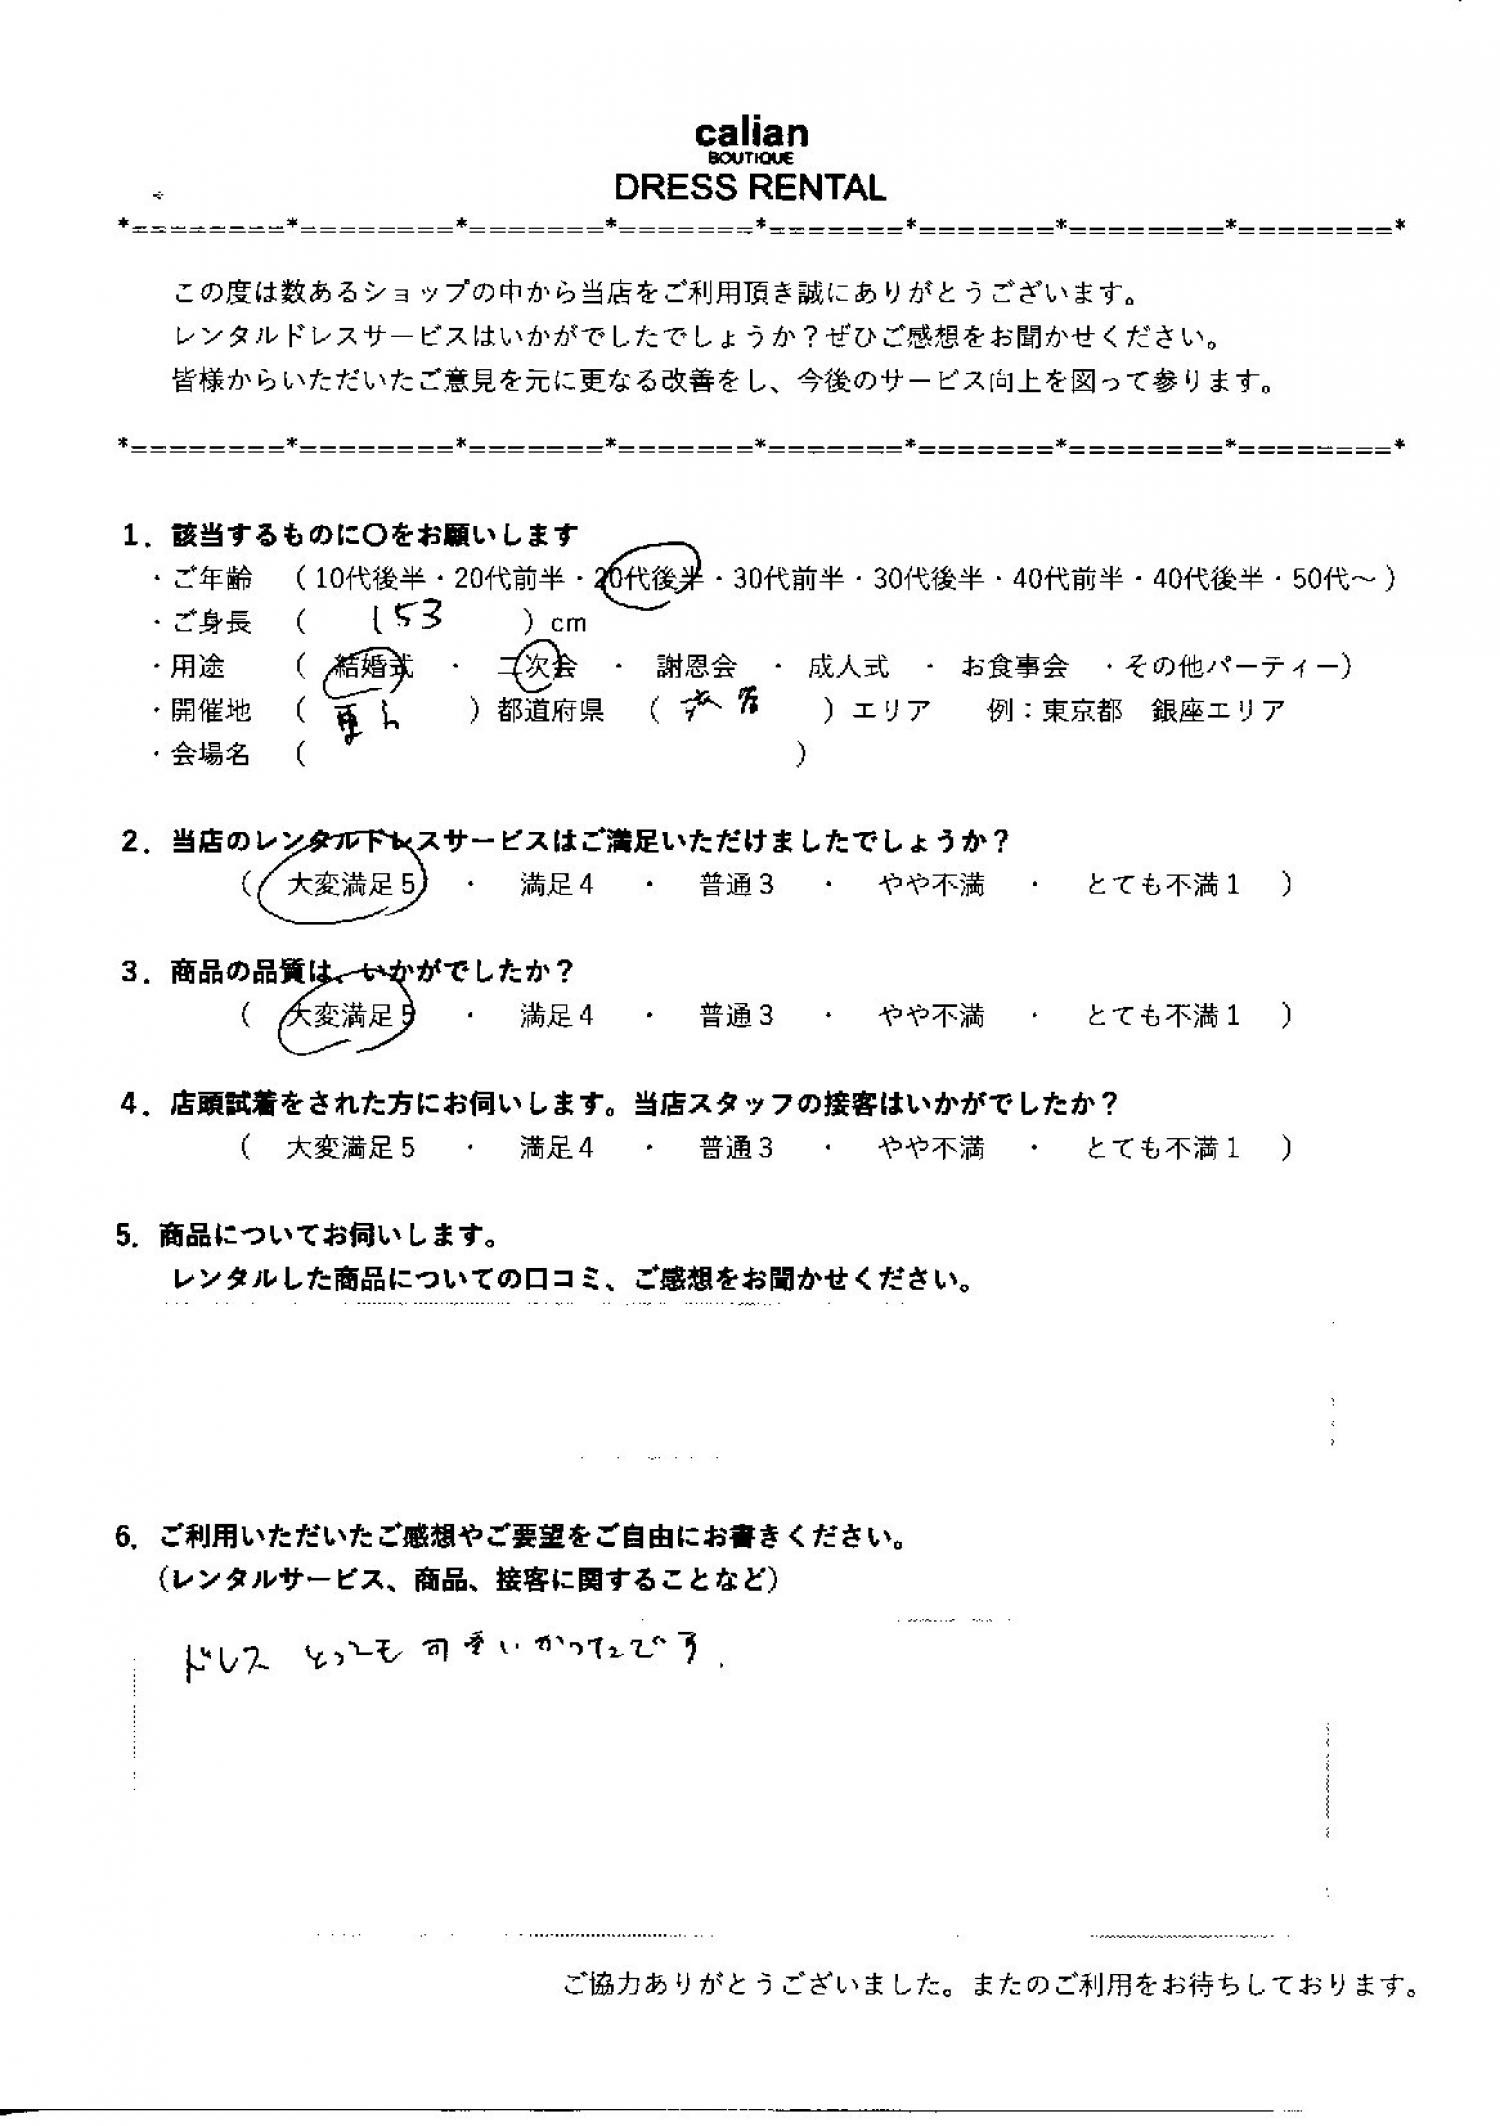 calian
BOUTIQUE
DRESS RENTAL
*========*========*=======*=======*=======*=======*========*========*
この度は数あるショップの中から当店をご利用頂き誠にありがとうございます。
レンタルドレスサービスはいかがでしたでしょうか？ぜひご感想をお聞かせください。
皆様からいただいたご意見を元に更なる改善をし、今後のサービス向上を図って参ります。
*========*========*=======*=======*=======*=======*========*========*
1．該当するものに〇をお願いします
・ご年齢 （10代後半・20代前半・20代後半・30代前半・30代後半・40代前半・40代後半・50代～）
・ご身長 （ 153 ）cm
・用途 （ 結婚式 ・ 二次会 ・ 謝恩会 ・ 成人式 ・ お食事会 ・その他パーティー）
・開催地 （ 東京 ）都道府県 （ 渋谷 ）エリア 例：東京都 銀座エリア
・会場名 （ ）
2．当店のレンタルドレスサービスはご満足いただけましたでしょうか？
（ 大変満足5 ・ 満足4 ・ 普通3 ・ やや不満 ・ とても不満1 ）
3．商品の品質は、いかがでしたか？
（ 大変満足5 ・ 満足4 ・ 普通3 ・ やや不満 ・ とても不満1 ）
4．店頭試着をされた方にお伺いします。当店スタッフの接客はいかがでしたか？
（ 大変満足5 ・ 満足4 ・ 普通3 ・ やや不満 ・ とても不満1 ）
5．商品についてお伺いします。
レンタルした商品についての口コミ、ご感想をお聞かせください。
6．ご利用いただいたご感想やご要望をご自由にお書きください。
（レンタルサービス、商品、接客に関することなど）
ドレス とっても可愛いかったです.
ご協力ありがとうございました。またのご利用をお待ちしております。